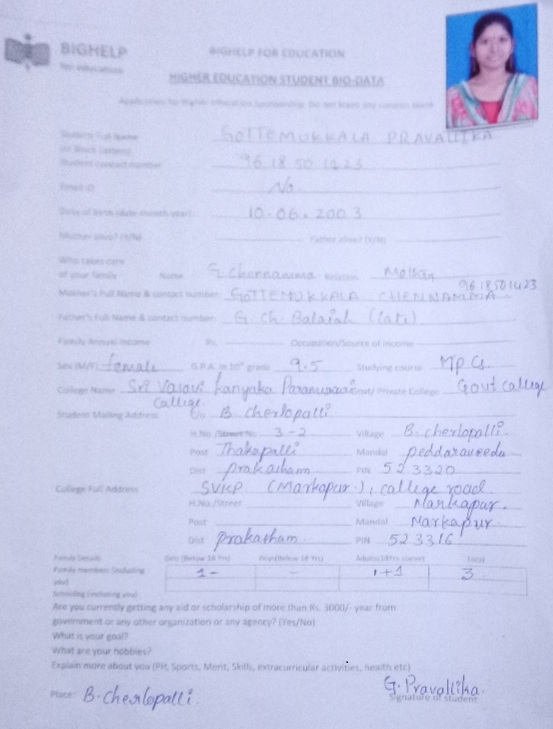 BIGHELP
for education
BIGHELP FOR EDUCATION
HIGHER EDUCATION STUDENT BIO-DATA
Application for Higher education Sponsorship. Do not leave any column blank
Student Full Name
(in Block Letters) GOTTEMUKKALA PRAVALLIKA
Student contact number 96 18 50 1423
Email ID No
Date of birth (date-month-year) 10-06-2003
Mother alive? (Y/N) Father alive? (Y/N)
Who takes care
of your family Name G Chennamma Relation Mother
9618501423
Mother's Full Name & contact number GOTTEMUKKALA CHENNAMMA
Father's Full Name & contact number G Ch Balaiah (late)
Family Annual Income Rs. Occupation/Source of Income
Sex (M/F) female G.P.A. in 10th grade 9.5 Studying course MPCs
College Name Sri Vasavi Kanyaka Govt/ Private College Govt college
College
Student Mailing Address B. cherlopalli
H.No /Street No 3-2 Village B. cherlopalli.
Post Thokapalli Mandal peddaraveedu
Dist prakasham PIN 523320
College Full Address SVKP (Markapur), college road
H.No. /Street Village Markapur.
Post Mandal Markapur
Dist prakasham. PIN 523316
Family Details Girls (Below 18 Yrs) Boys (Below 18 Yrs) Adults (18Yrs above) Total
Family members (including
you) 1- - 1+1 3
Schooling (including you)
Are you currently getting any aid or scholarship of more than Rs. 3000/- year from
government or any other organization or any agency? (Yes/No)
What is your goal?
What are your hobbies?
Explain more about you (PH, Sports, Merit, Skills, extracurricular activities, health etc)
Place: B. Cherlopalli
G. Pravallika.
Signature of Student